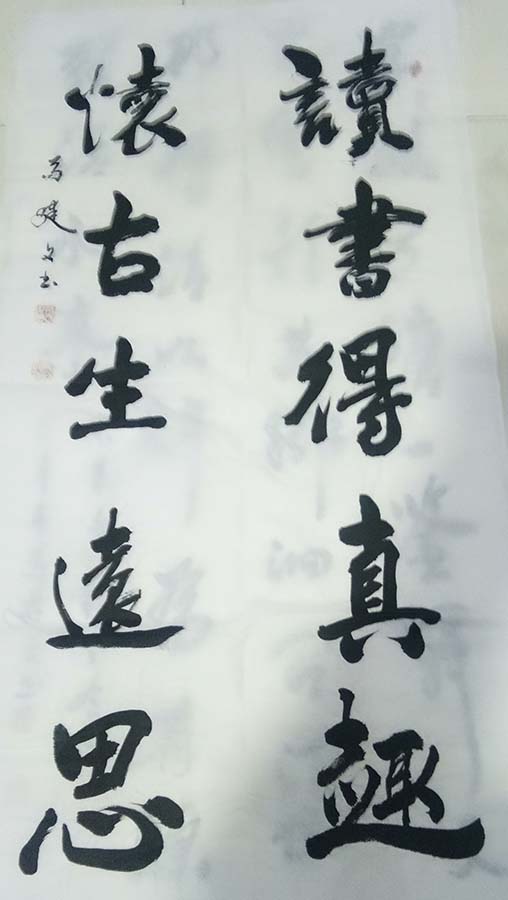 讀書得真趣
懷古生遠思
馬建文书